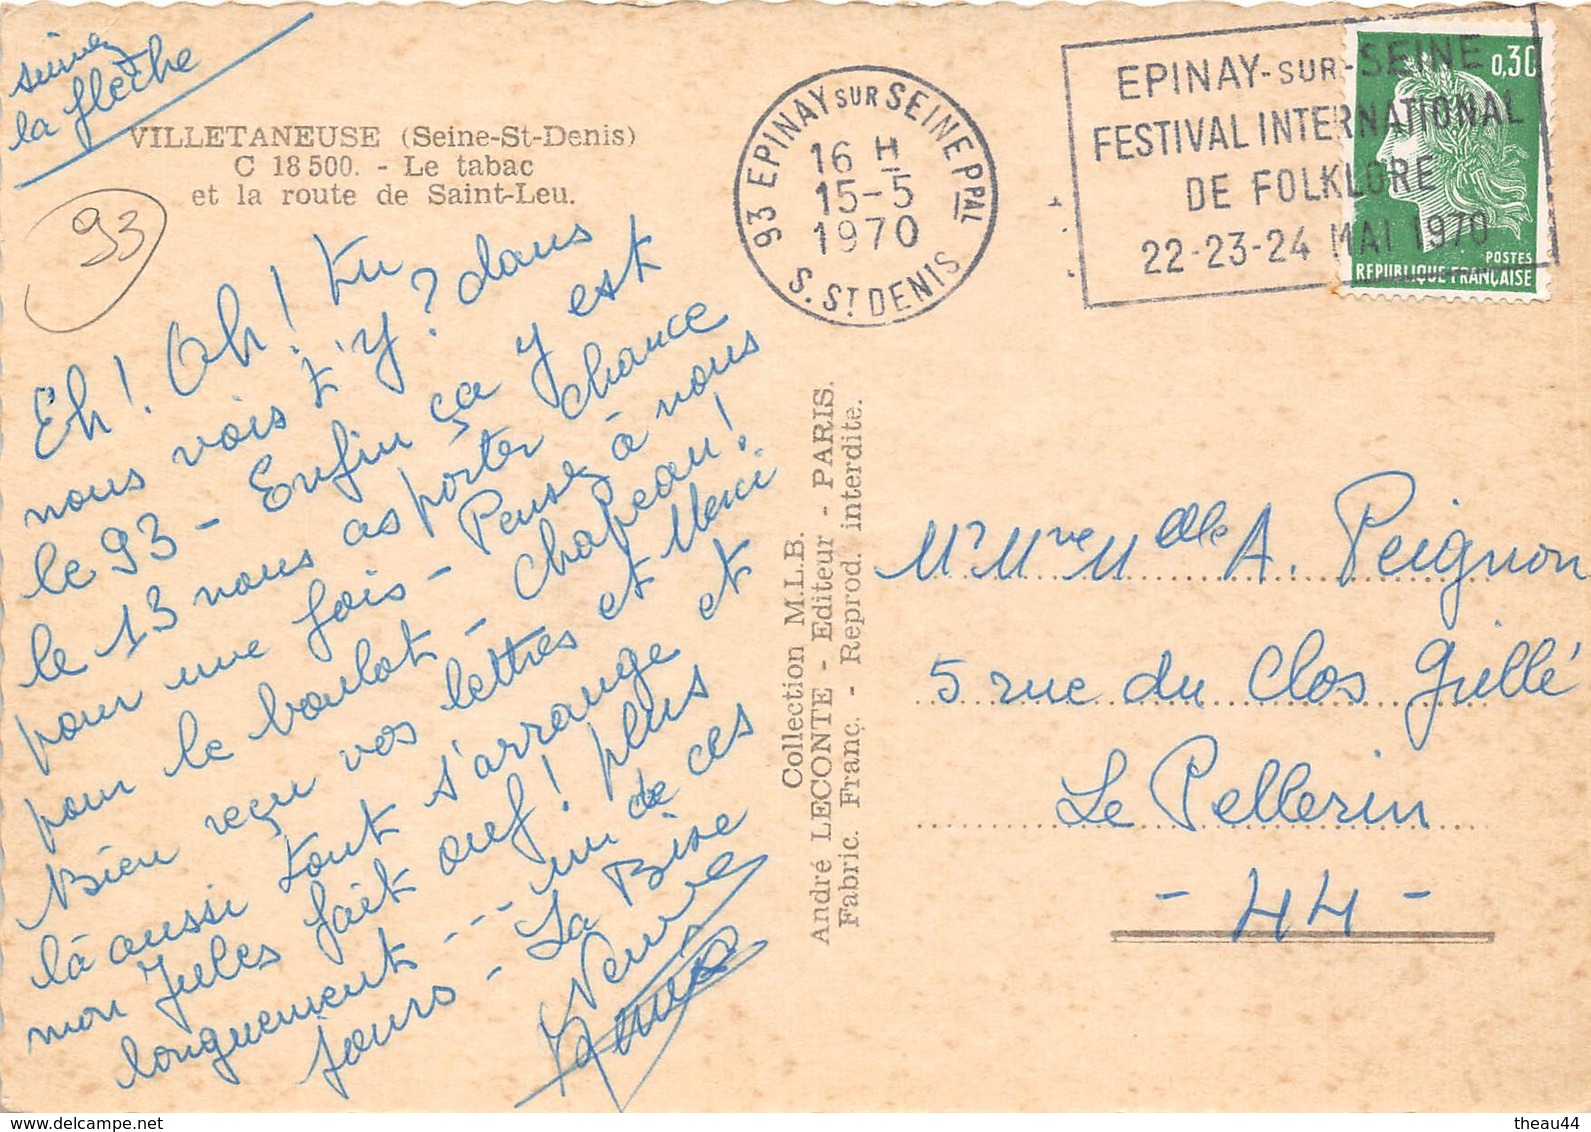 suivez
la flèche
VILLETANEUSE (Seine-St-Denis)
C 18 500. - Le tabac
et la route de Saint-Leu.
93
Eh! Oh! tu
nous vois t'y? dans
le 93 - Enfin ça y est
le 13 nous as porter chance
pour une fois - Pensez à nous
pour le boulot - chapeau!
Bien reçu vos lettres et Merci
là aussi tout s'arrange et
mon Jules fait ouf! plus
longuement --- un de ces
jours - La Bise
93 EPINAY SUR SEINE PPAL
16 H
15-5
1970
S. ST DENIS
EPINAY-SUR-SEINE
FESTIVAL INTERNATIONAL
DE FOLKLORE
22-23-24 MAI 1970
0,30
POSTES
REPUBLIQUE FRANÇAISE
Collection M.L.B.
André LECONTE - Editeur - PARIS.
Fabric. Franç. - Reprod. interdite.
Mr Mme Melle A. Peignon
5 rue du Clos Grillé
Le Pellerin
- 44 -
theau44